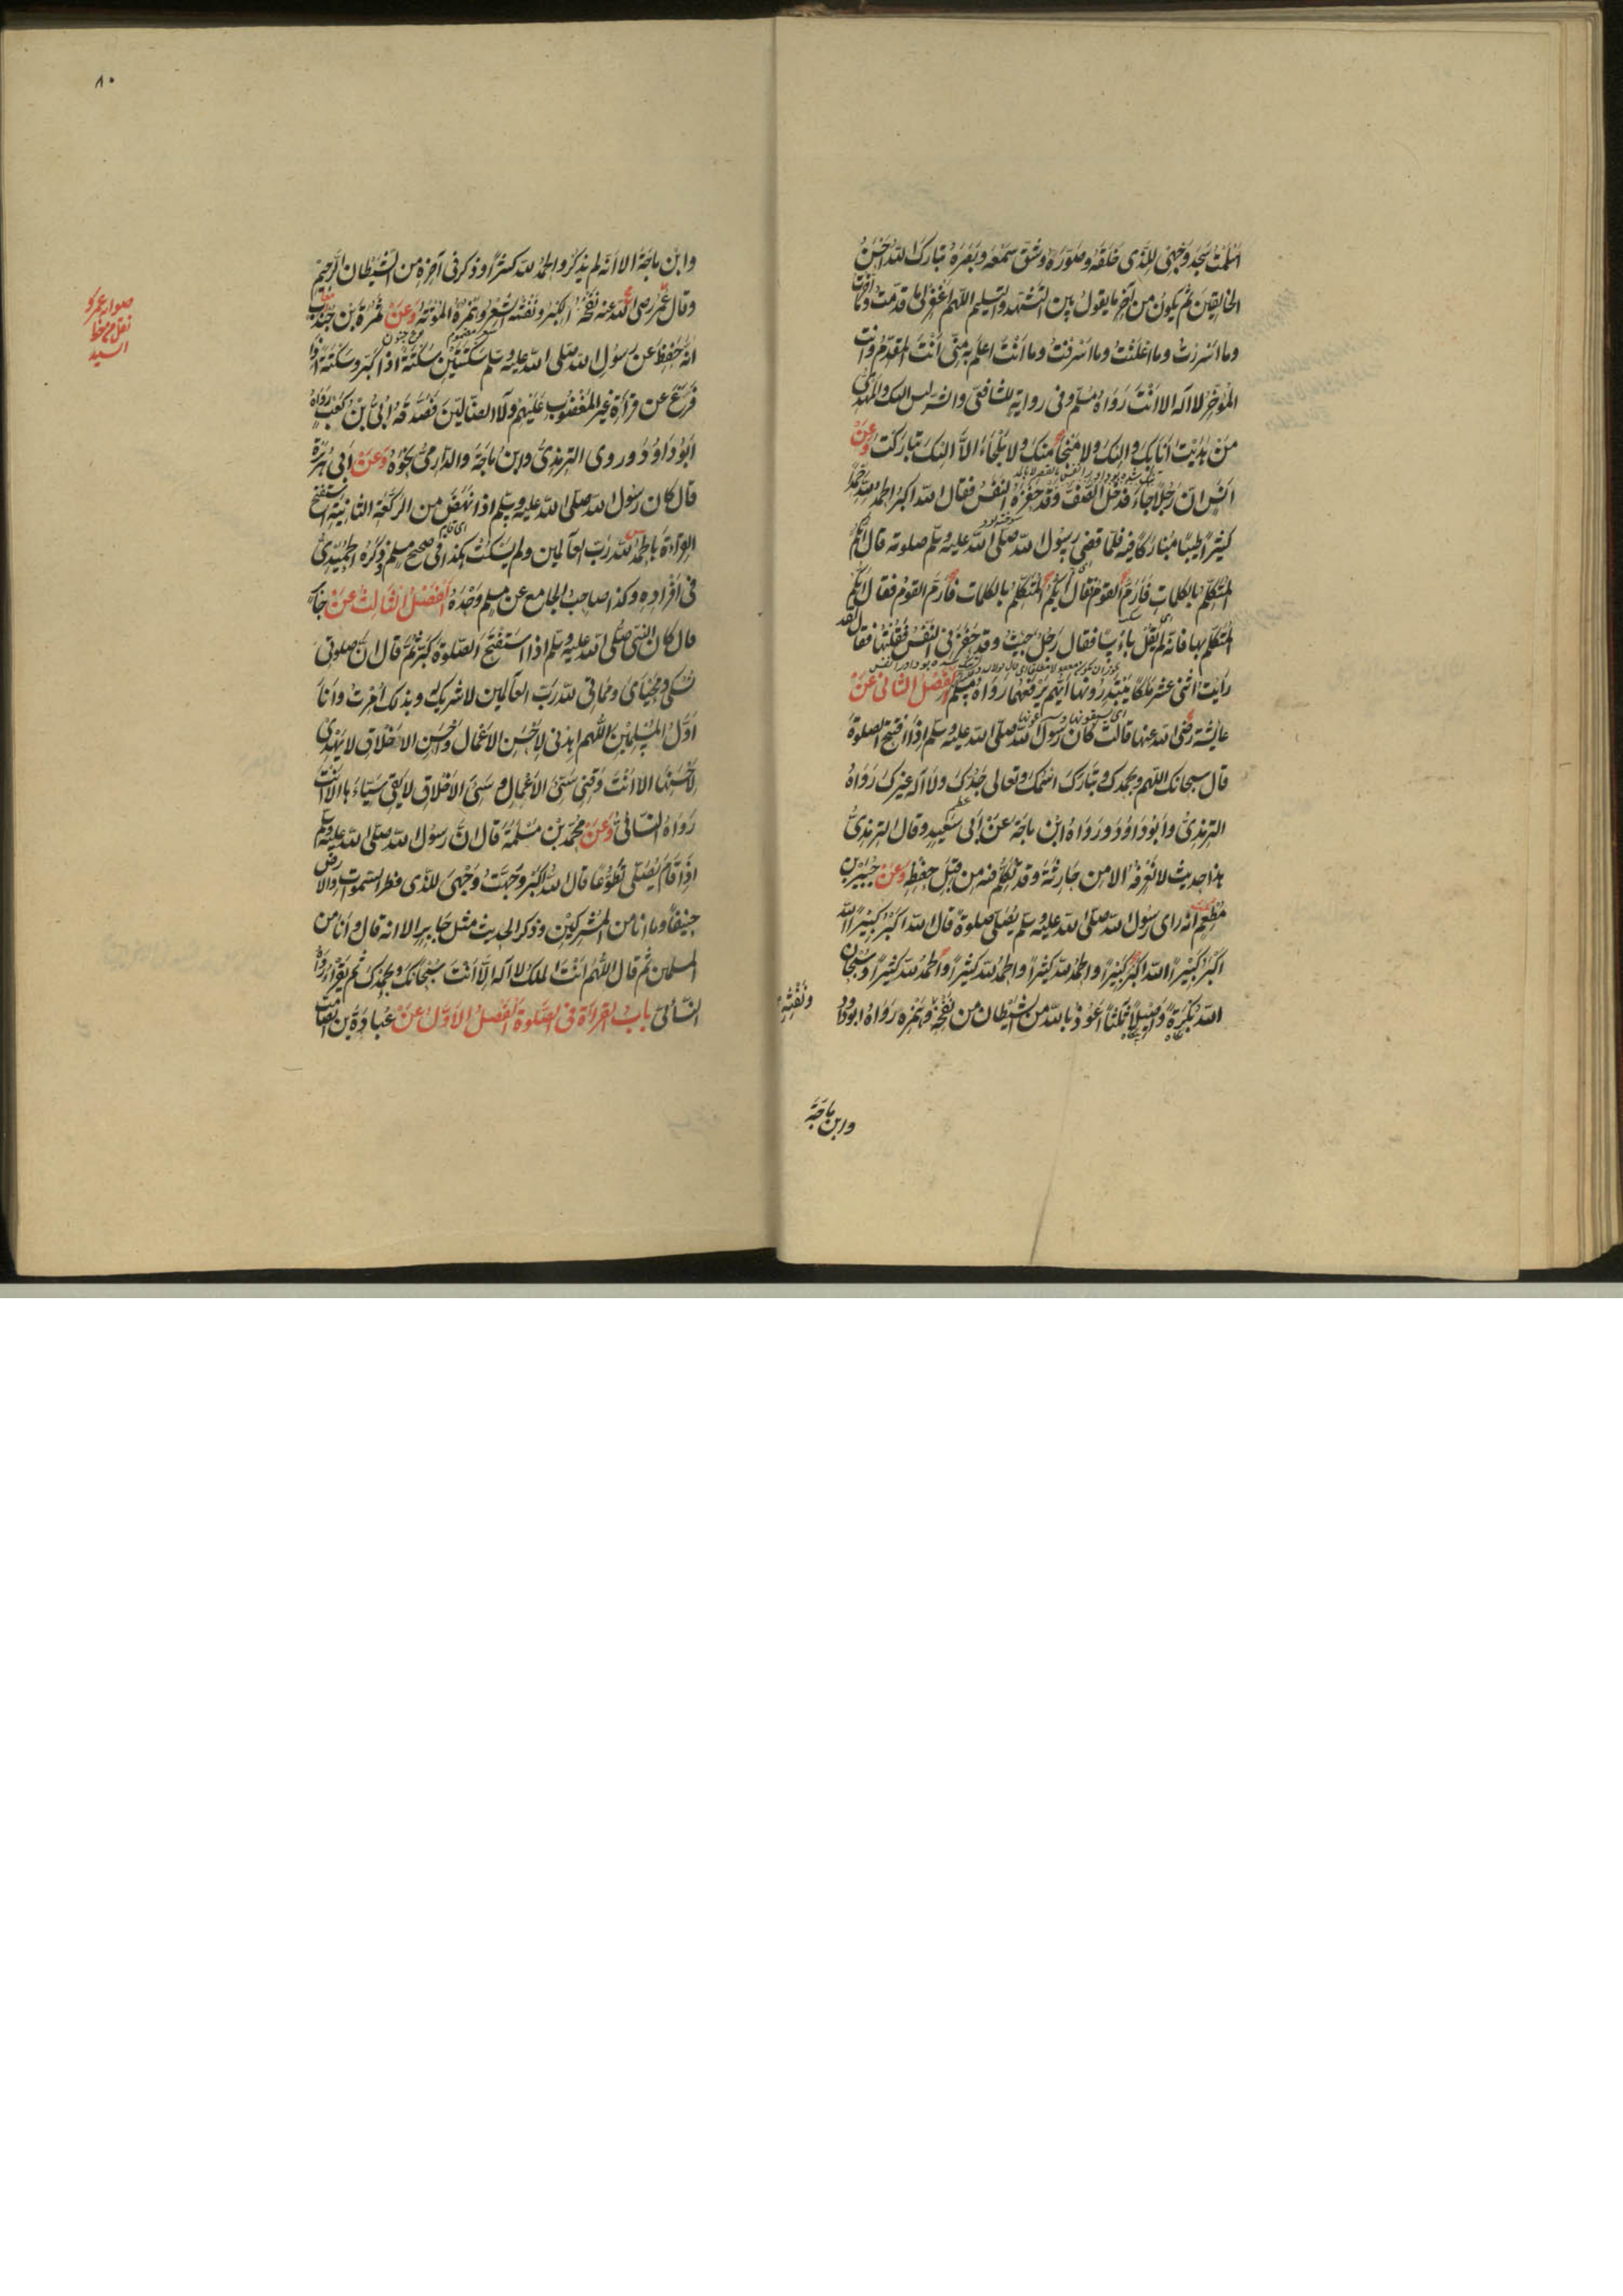 اسلمت سجد وجهى للذى خلقه وصوره وشق سمعه وبصره تبارك الله احسن
الخالقين ثم يكون من آخر ما يقول بين التشهد والتسليم اللهم اغفر لى ما قدمت وما اخرت
وما اسررت وما اعلنت وما اسرفت وما انت اعلم به منى انت المقدم وانت
المؤخر لا اله الا انت رواه مسلم وفى رواية للشافعى والشر ليس اليك والمهدى
من هديت انا بك واليك ولا منجا منك ولا ملجاء الا اليك تباركت وعن
انس ان رجلا جاء فدخل الصف وقد حفزه النفس فقال الله اكبر الحمد لله حمدا
كثيرا طيبا مباركا فيه فلما قضى رسول الله صلى الله عليه وسلم صلوته قال ايكم
المتكلم بالكلمات فارم القوم فقال ايكم المتكلم بالكلمات فارم القوم فقال ايكم
المتكلم بها فانه لم يقل باسا فقال رجل جئت وقد حفزنى النفس فقلتها فقال لقد
رايت اثنى عشر ملكا يبتدرونها ايهم يرفعها رواه مسلم الفصل الثانى عن
عايشة رضى الله عنها قالت كان رسول الله صلى الله عليه وسلم اذا افتتح الصلوة
قال سبحانك اللهم وبحمدك وتبارك اسمك وتعالى جدك ولا اله غيرك رواه
الترمذى وابو داود ورواه ابن ماجة عن ابى سعيد وقال الترمذى
هذا حديث لا نعرفه الا من حارثة وقد تكلم فيه من قبل حفظه وعن جبير بن
مطعم انه راى رسول الله صلى الله عليه وسلم يصلى صلوة قال الله اكبر كبيرا الله
اكبر كبيرا الله اكبر كبيرا والحمد لله كثيرا والحمد لله كثيرا والحمد لله كثيرا وسبحان
الله بكرة واصيلا ثلثا اعوذ بالله من الشيطان من نفخه وهمزه رواه ابو داود
ونفثه
وابن ماجة
٨٠
وابن ماجة الا انه لم يذكر والحمد لله كثيرا وذكر فى آخره من الشيطان الرجيم
وقال عمر رضى الله عنه نفخه الكبر ونفثه الشعر وهمزه الموتة وعن سمرة بن جندب
انه حفظ عن رسول الله صلى الله عليه وسلم سكتتين سكتة اذا كبر وسكتة اذا
فرغ عن قراءة غير المغضوب عليهم ولا الضالين فصدقه ابى بن كعب رواه
ابو داود وروى الترمذى وابن ماجة والدارمى نحوه وعن ابى هريرة
قال كان رسول الله صلى الله عليه وسلم اذا نهض من الركعة الثانية استفتح
القراءة بالحمد لله رب العالمين ولم يسكت هكذا فى صحيح مسلم وذكره الحميدى
فى افراده وكذا صاحب الجامع عن مسلم وحده الفصل الثالث عن جابر
قال كان النبى صلى الله عليه وسلم اذا استفتح الصلوة كبر ثم قال ان صلوتى
ونسكى ومحياى ومماتى لله رب العالمين لا شريك له وبذلك امرت وانا
اول المسلمين اللهم اهدنى لاحسن الاعمال واحسن الاخلاق لا يهدى
لاحسنها الا انت وقنى سيئ الاعمال وسيئ الاخلاق لا يقى سيئها الا انت
رواه النسائى وعن محمد بن مسلمة قال ان رسول الله صلى الله عليه وسلم
اذا قام يصلى تطوعا قال الله اكبر وجهت وجهى للذى فطر السموات والارض
حنيفا وما انا من المشركين وذكر الحديث مثل جابر الا انه قال وانا من
المسلمين ثم قال اللهم انت الملك لا اله الا انت سبحانك وبحمدك ثم يقرأ رواه
النسائى باب القراءة فى الصلوة الفصل الاول عن عبادة بن الصامت